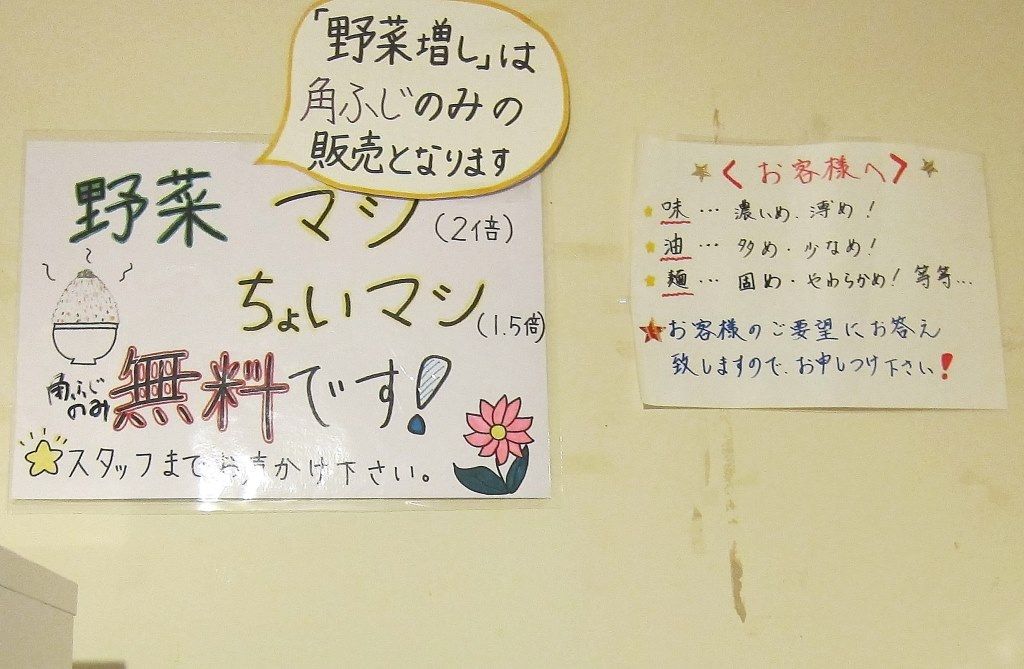 「野菜増し」は
角ふじのみの
販売となります
野菜 マシ(2倍)
ちょいマシ(1.5倍)
角ふじ
のみ
無料です!
スタッフまでお声かけ下さい。
<お客様へ>
味…濃いめ・薄め!
油…多め・少なめ!
麺…固め・やわらかめ!等等…
お客様のご要望にお答え
致しますので、お申しつけ下さい!